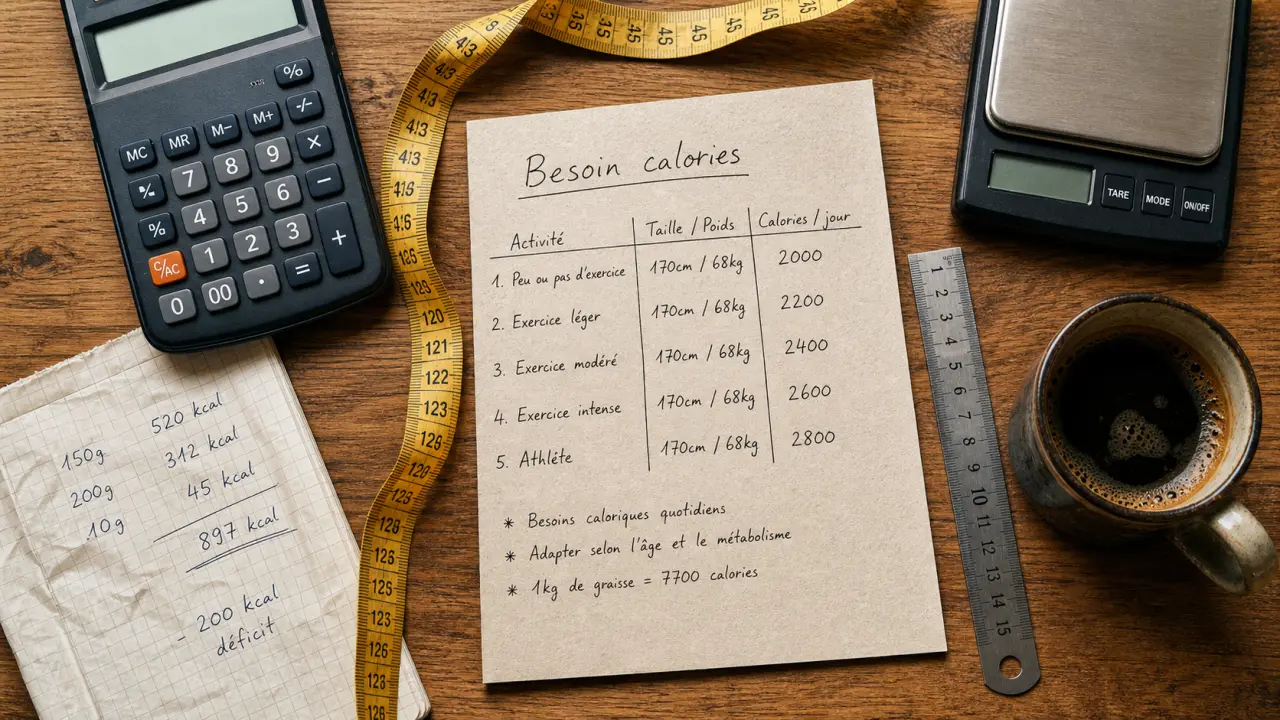 Besoin calories
Activité Taille / Poids Calories / jour
1. Peu ou pas d'exercice 170cm / 68kg 2000
2. Exercice léger 170cm / 68kg 2200
3. Exercice modéré 170cm / 68kg 2400
4. Exercice intense 170cm / 68kg 2600
5. Athléte 170cm / 68kg 2800
* Besoins caloriques quotidiens
* Adapter selon l'âge et le métabolisme
* 1kg de graisse = 7700 calories
150g 520 kcal
200g 312 kcal
10g 45 kcal
897 kcal
- 200 kcal
déficit
%
MC MR M- M+ -/-
% 7 8 9 ×
% 4 5 6 −
C/AC 1 2 3 +
0 00 . =
TARE MODE ON/OFF
1 2 3 4 5 6 7 8 9 10 11 12 13 14 15